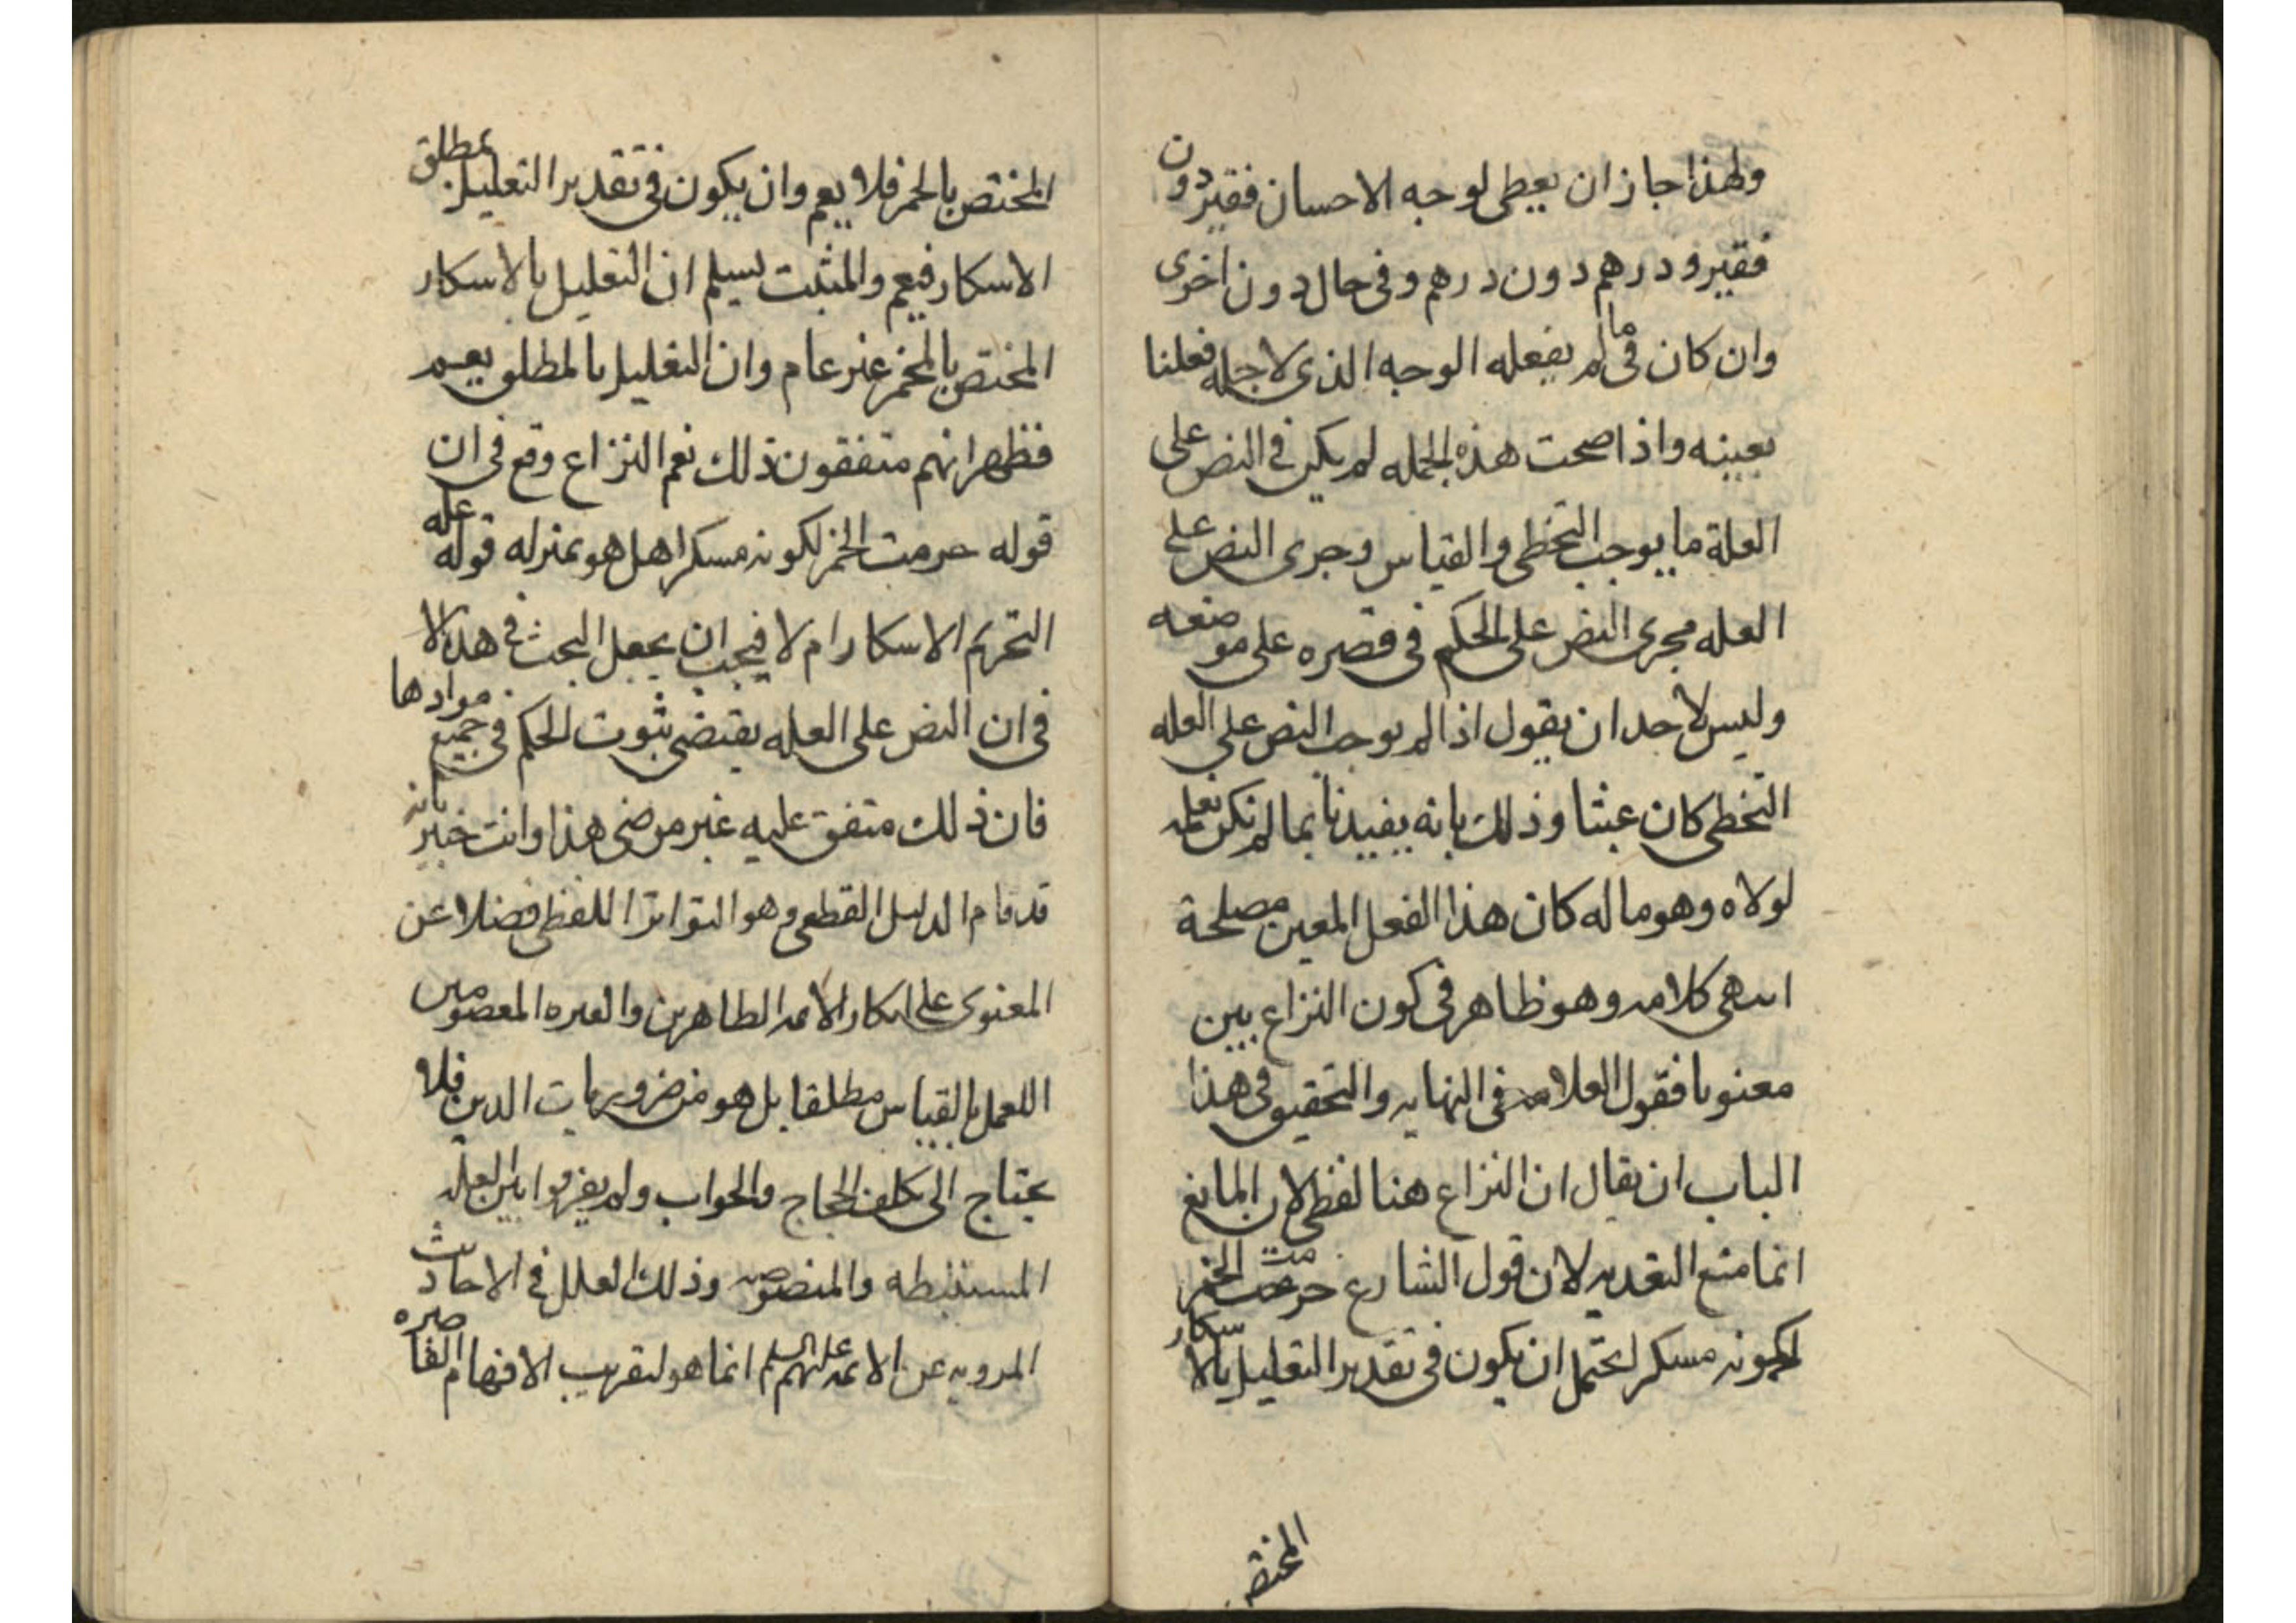 ولهذا جاز ان يعطى لوجه الاحسان فقير دون
فقير ودرهم دون درهم وفى حال دون اخرى
وان كان فى ما لم يفعله الوجه الذى لاجله فعلنا
بعينه واذا صحت هذه الجمله لم يكن فى النص على
العلة ما يوجب التخطى والقياس وجرى النص على
العله مجرى النص على الحكم فى قصره على موضعه
وليس لاحد ان يقول اذا لم يوجب النص على العله
التخطى كان عبثا وذلك بانه يفيدنا بما لم نكن نعلمه
لولاه وهو ما له كان هذا الفعل المعين مصلحة
انتهى كلامه وهو ظاهر فى كون النزاع بين
معنويا فقول العلامه فى النهايه والتحقيق فى هذا
الباب ان يقال ان النزاع هنا لفظى لان المانع
انما منع التعديه لان قول الشارع حرمت الخمر
لكونه مسكرا يحتمل ان يكون فى تقدير التعليل بالاسكار
المختص
المختص بالخمر فلا يعم وان يكون فى تقدير التعليل بمطلق
الاسكار فيعم والمثبت يسلم ان التعليل بالاسكار
المختص بالخمر غير عام وان التعليل بالمطلق يعم
فظهر انهم متفقون ذلك نعم النزاع وقع فى ان
قوله حرمت الخمر لكونه مسكرا هل هو بمنزله قوله عله
التحريم الاسكار ام لا فيجب ان يجعل البحث فى هذا لا
فى ان النص على العله يقتضى ثبوت الحكم فى جميع مواردها
فان ذلك متفق عليه غير مرضى هذا وانت خبير بانه
قد قام الدليل القطعى وهو التواتر اللفظى فضلا عن
المعنوى على انكار الائمه الطاهرين والعتره المعصومين
اللعمل بالقياس مطلقا بل هو من ضروريات الدين فلا
يحتاج الى تكلف الحجاج والجواب ولم يفرقوا بين العله
المستنبطه والمنصوصه وذلك العلل فى الاحاديث
المرويه عن الائمه عليهم السلم انما هو لتقريب الافهام القاصره